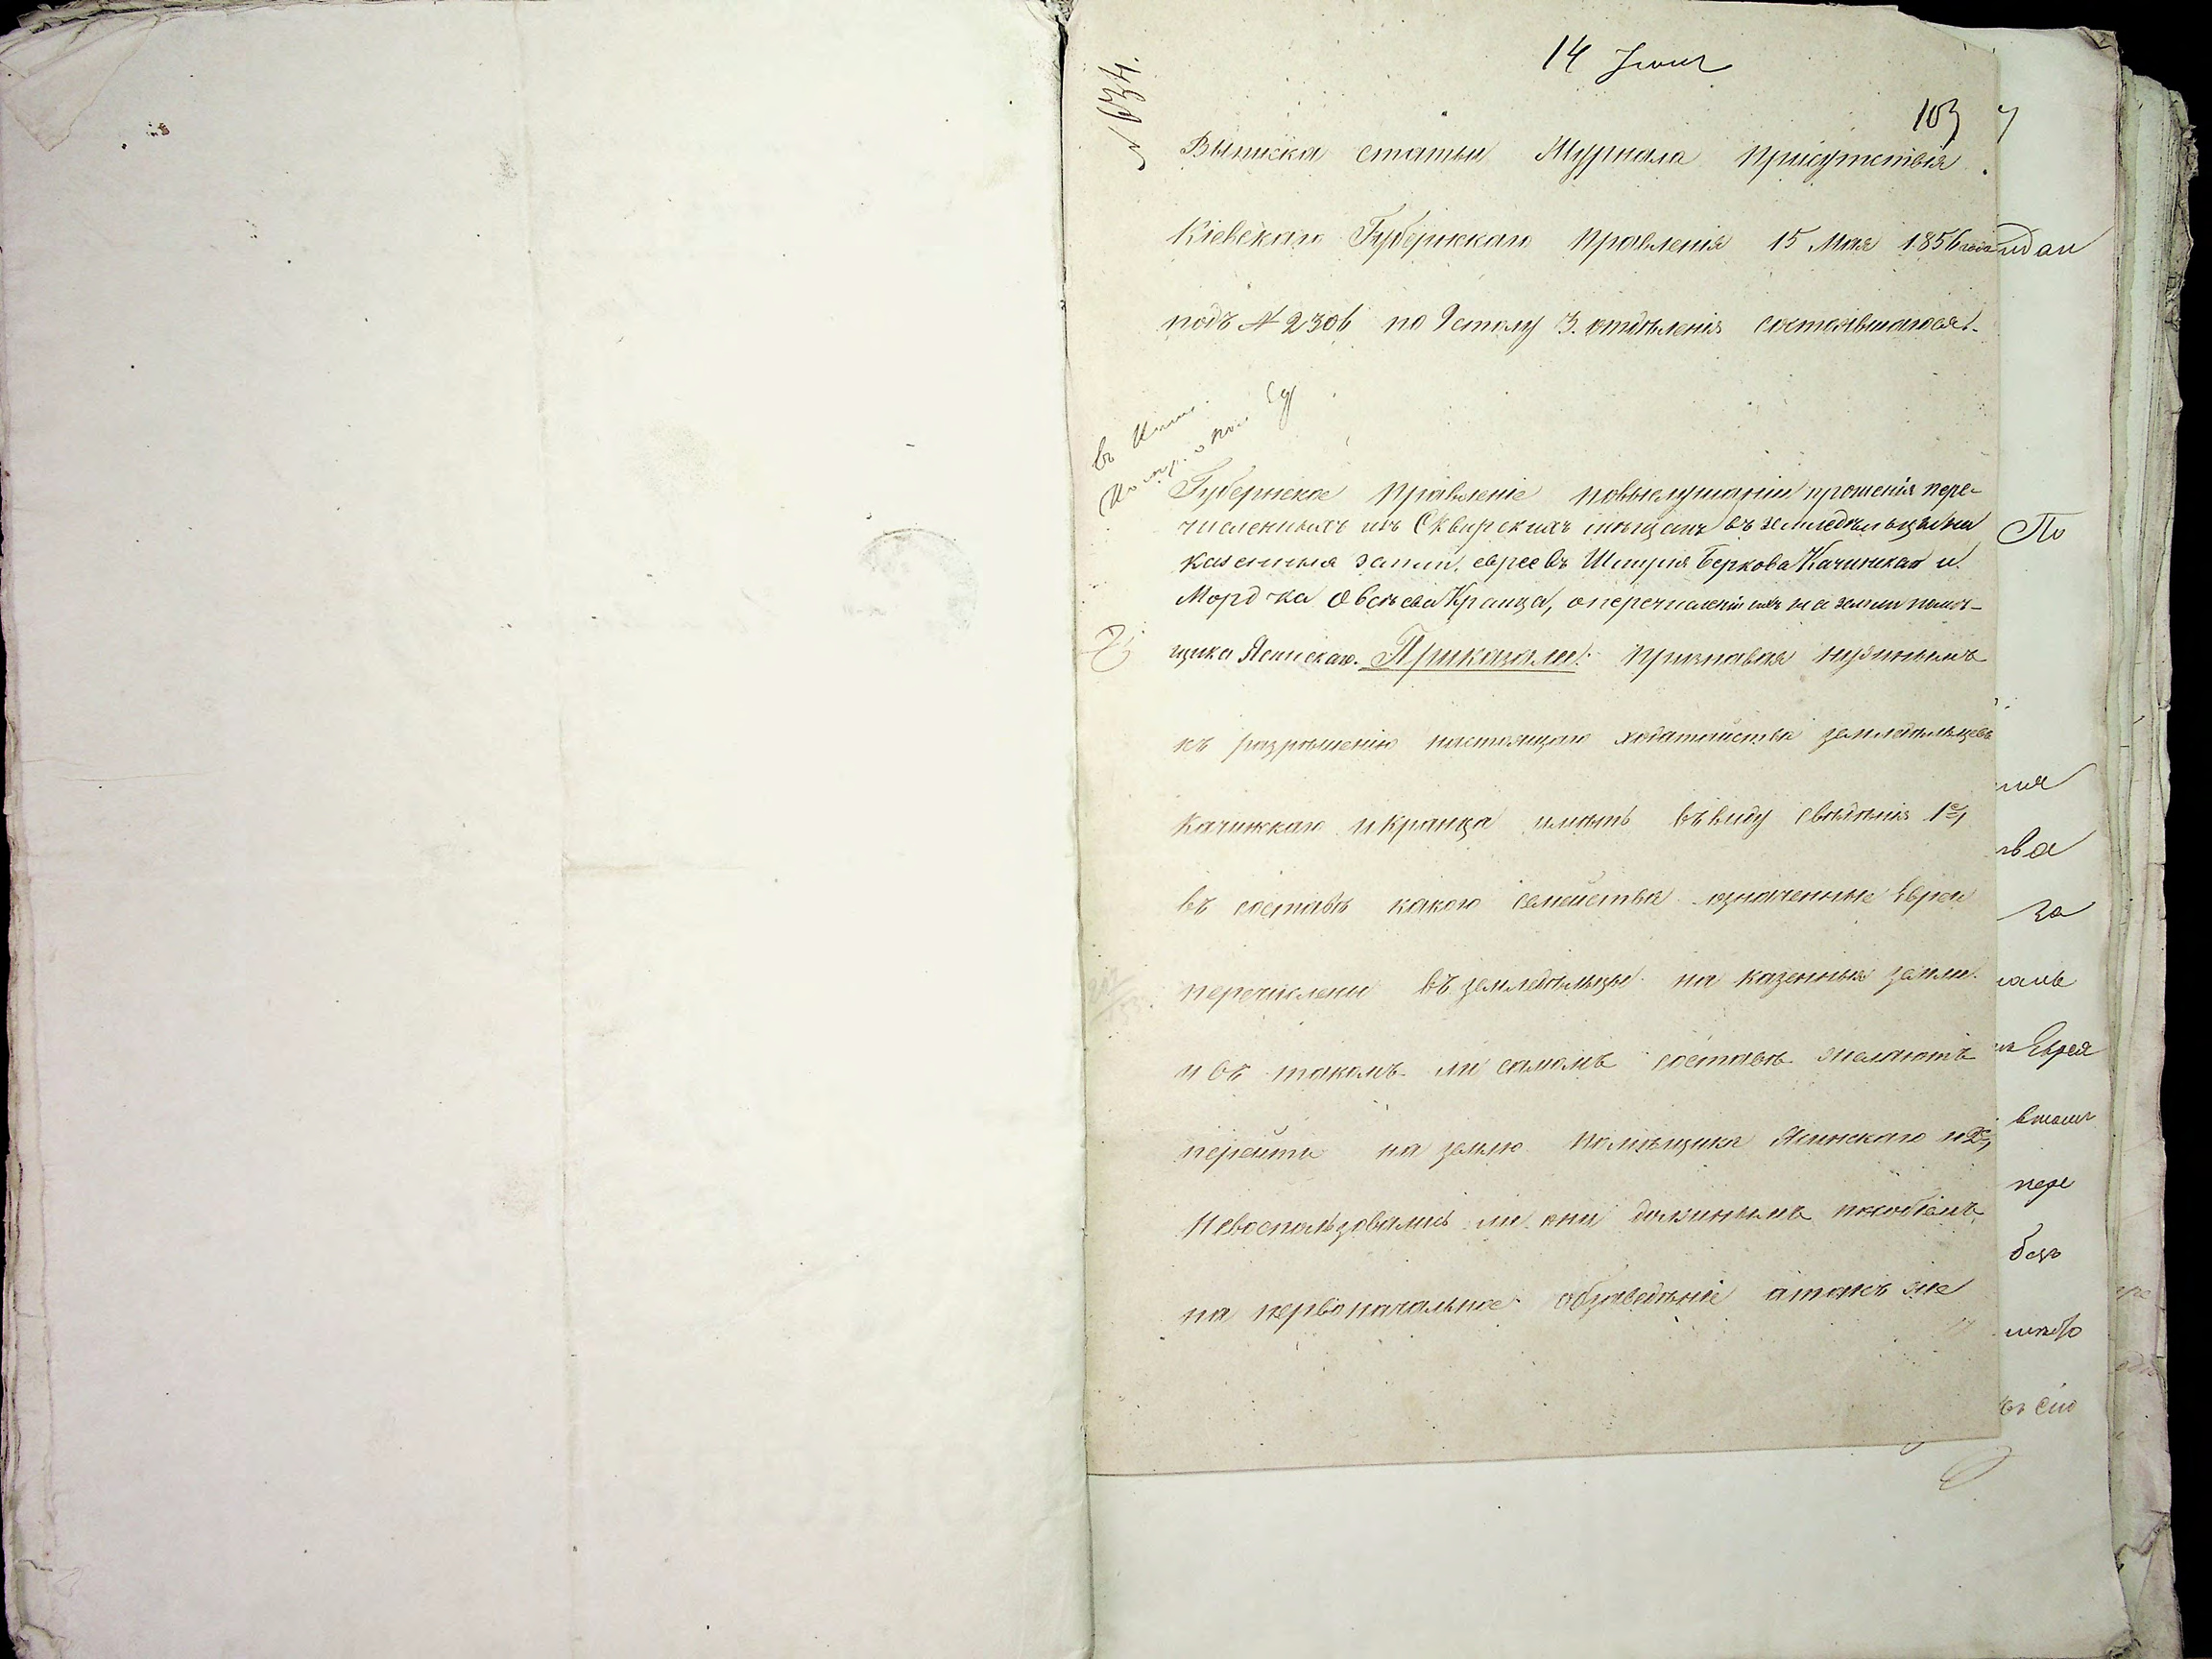 14 Іюня
103
Выписка статьи Журнала присутствія
Кіевскаго Губернскаго Правленія 15 Мая 1856 года
подъ № 2306 по 9 столу 3. отдѣленія состоявшагося.
Губернское Правленіе повыслушаніи прошенія пере-
численныхъ изъ Сквирскихъ мѣщанъ въ земледѣльцы на
казенныя земли, евреевъ Шмуля Беркова Качинскаго и
Мордка Овсѣева Кранца, о перечисленіи ихъ на земли помѣ-
щика Ясинскаго. Приказали: Признавая нужнымъ
къ разрѣшенію настоящаго ходатайства земледѣльцевъ
Качинскаго и Кранца имѣть въ виду свѣдѣнія 1е,
въ составѣ какого семейства означенные Евреи
перечислены въ земледѣльцы на казенныя земли
и въ такомъ ли самомъ составѣ желаютъ
перейти на землю помѣщика Ясинскаго и 2е,
Невоспользовались ли они должнымъ пособіемъ
на первоначальное обзаведѣніе атакъ же
По
за
Еврея
пере
безъ